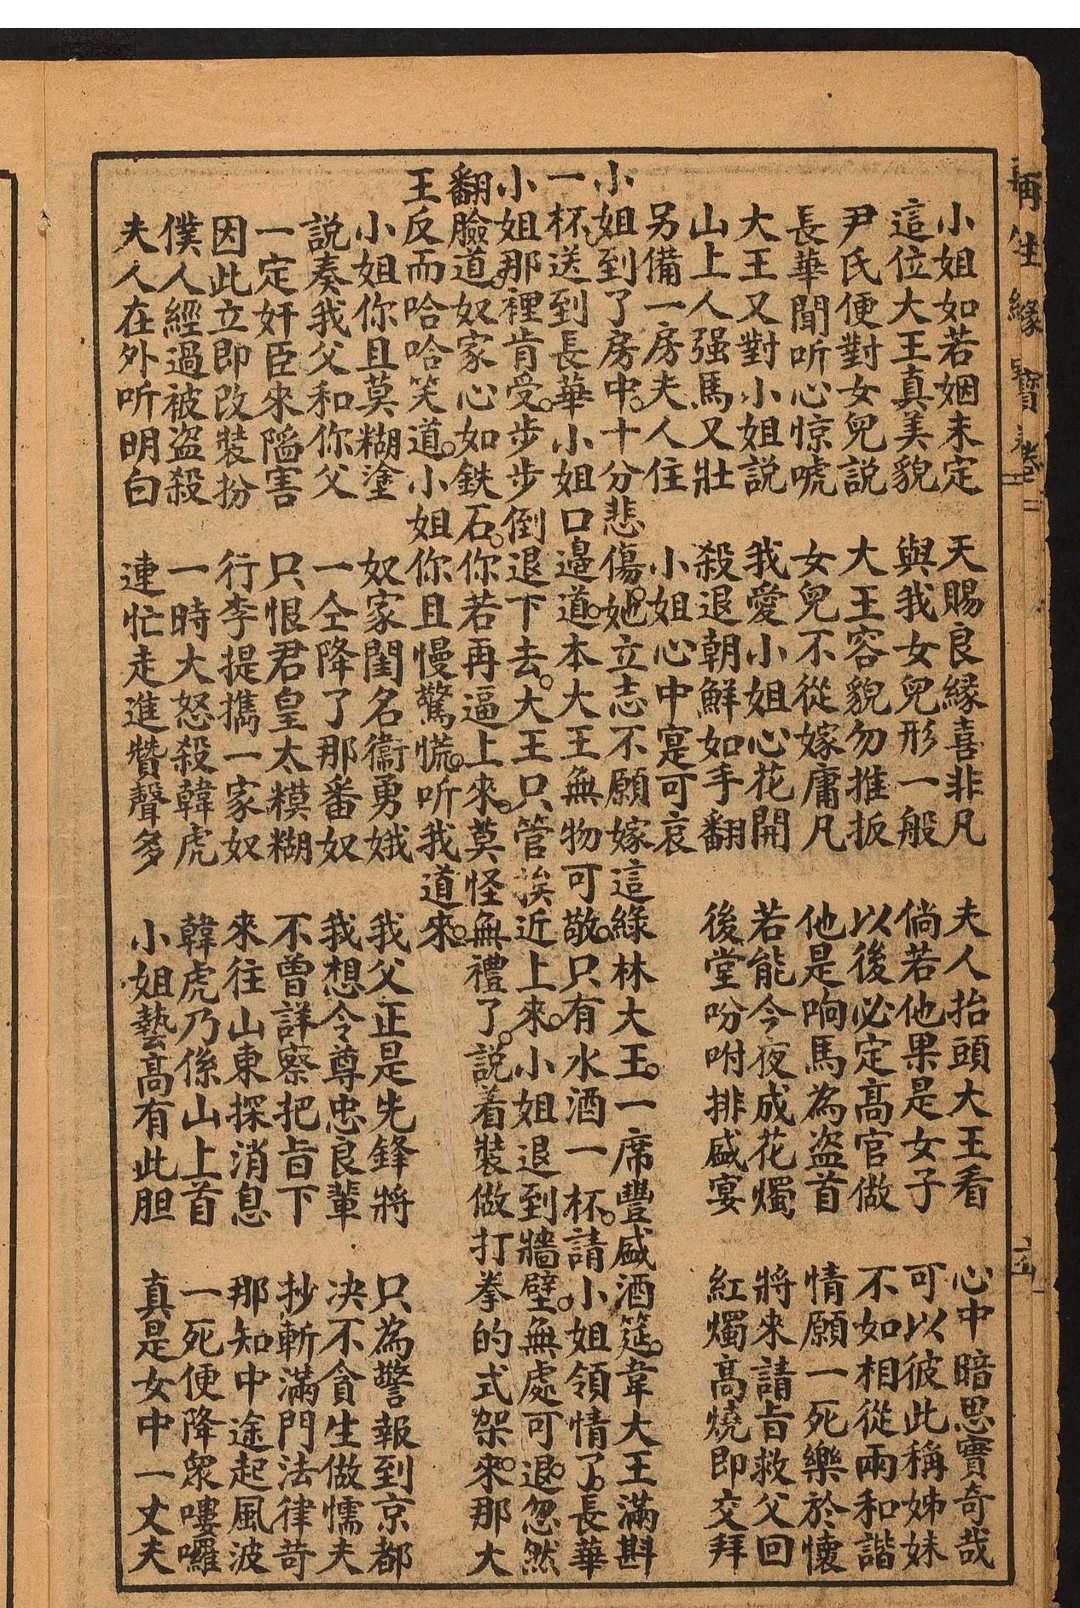 再生緣寶卷二
小姐如若姻未定　天賜良緣喜非凡　夫人抬頭大王看　心中暗思實奇哉
這位大王真美貌　與我女兒形一般　倘若他果是女子　可以彼此稱姊妹
尹氏便對女兒說　大王容貌勿推扳　以後必定高官做　不如相從兩和諧
長華聞听心惊唬　女兒不從嫁庸凡　他是响馬為盜首　情願一死樂於懷
大王又對小姐説　我愛小姐心花開　若能今夜成花燭　將來請旨救父回
山上人强馬又壯　殺退朝鮮如手翻　後堂吩咐排盛宴　紅燭高燒即交拜
另備一房夫人住　小姐心中寔可哀
小姐到了房中。十分悲傷。她立志不願嫁這綠林大王。一席豐盛酒筵。韋大王滿斟
一杯。送到長華小姐口邉道。本大王無物可敬。只有水酒一杯。請小姐領情了。長華
小姐那裡肯受。步步倒退下去。大王只管挨近上來。小姐退到牆壁。無處可退。忽然
翻臉道。奴家心如鉄石。你若再逼上來。莫怪無禮了。説着裝做打拳的式架。來那大
王反而哈哈笑道。小姐你且慢驚慌。听我道來。
小姐你且莫糊塗　奴家閨名衞勇娥　我父正是先鋒將　只為警報到京都
説奏我父和你父　一仝降了那番奴　我想令尊忠良輩　决不貪生做懦夫
一定奸臣來陷害　只恨君皇太糢糊　不曾詳察把旨下　抄斬滿門法律苛
因此立即改裝扮　行李提攜一家奴　來往山東探消息　那知中途起風波
僕人經過被盜殺　一時大怒殺韓虎　韓虎乃係山上首　一死便降衆嘍囉
夫人在外听明白　連忙走進贊聲多　小姐藝高有此胆　真是女中一丈夫